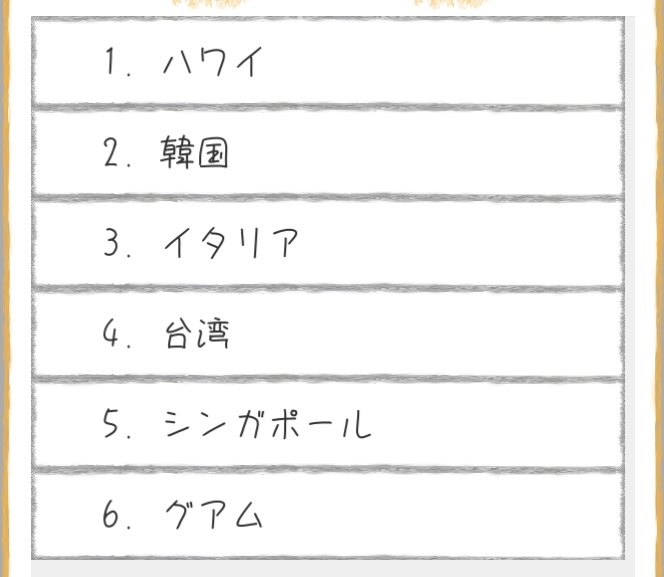 1. ハワイ
2. 韓国
3. イタリア
4. 台湾
5. シンガポール
6. グアム